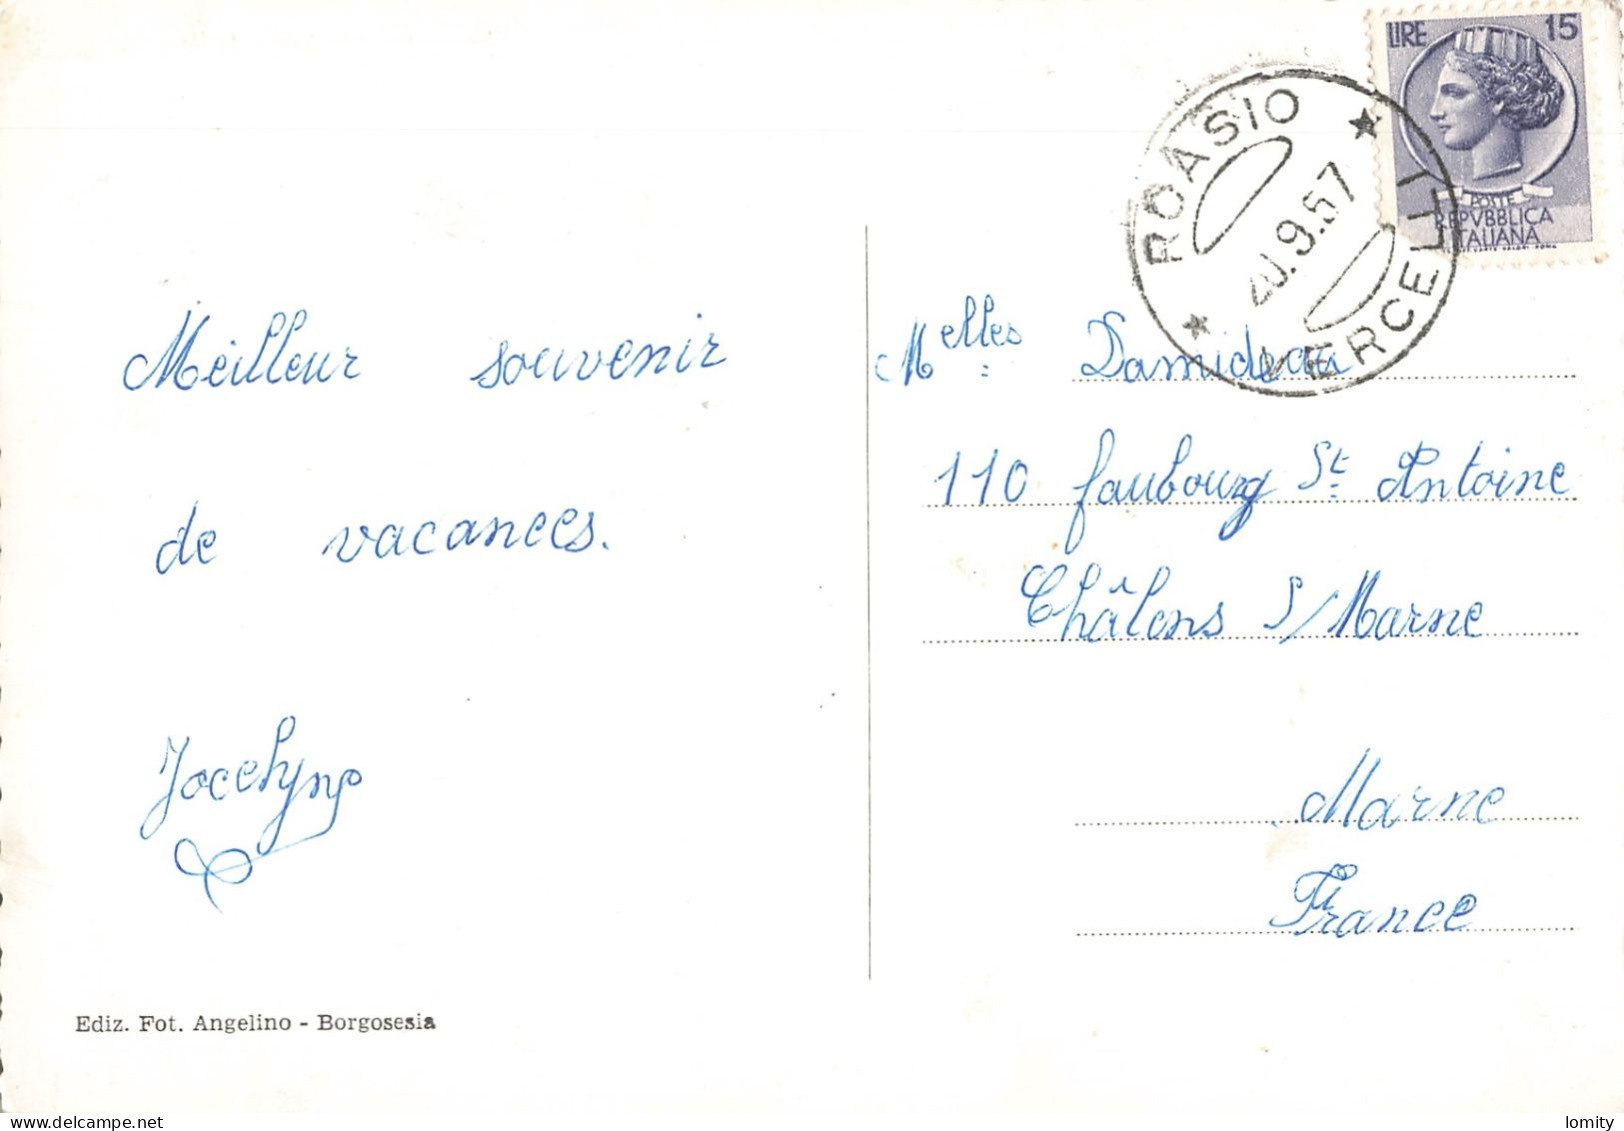 Meilleur souvenir
de vacances.
Jocelyne
Ediz. Fot. Angelino - Borgosesia
LIRE 15
POSTE
REPVBBLICA
ITALIANA
ROASIO
20.9.57
VERCELLI
Melles Damideau
110 faubourg St Antoine
Châlons s/Marne
Marne
France
lomity